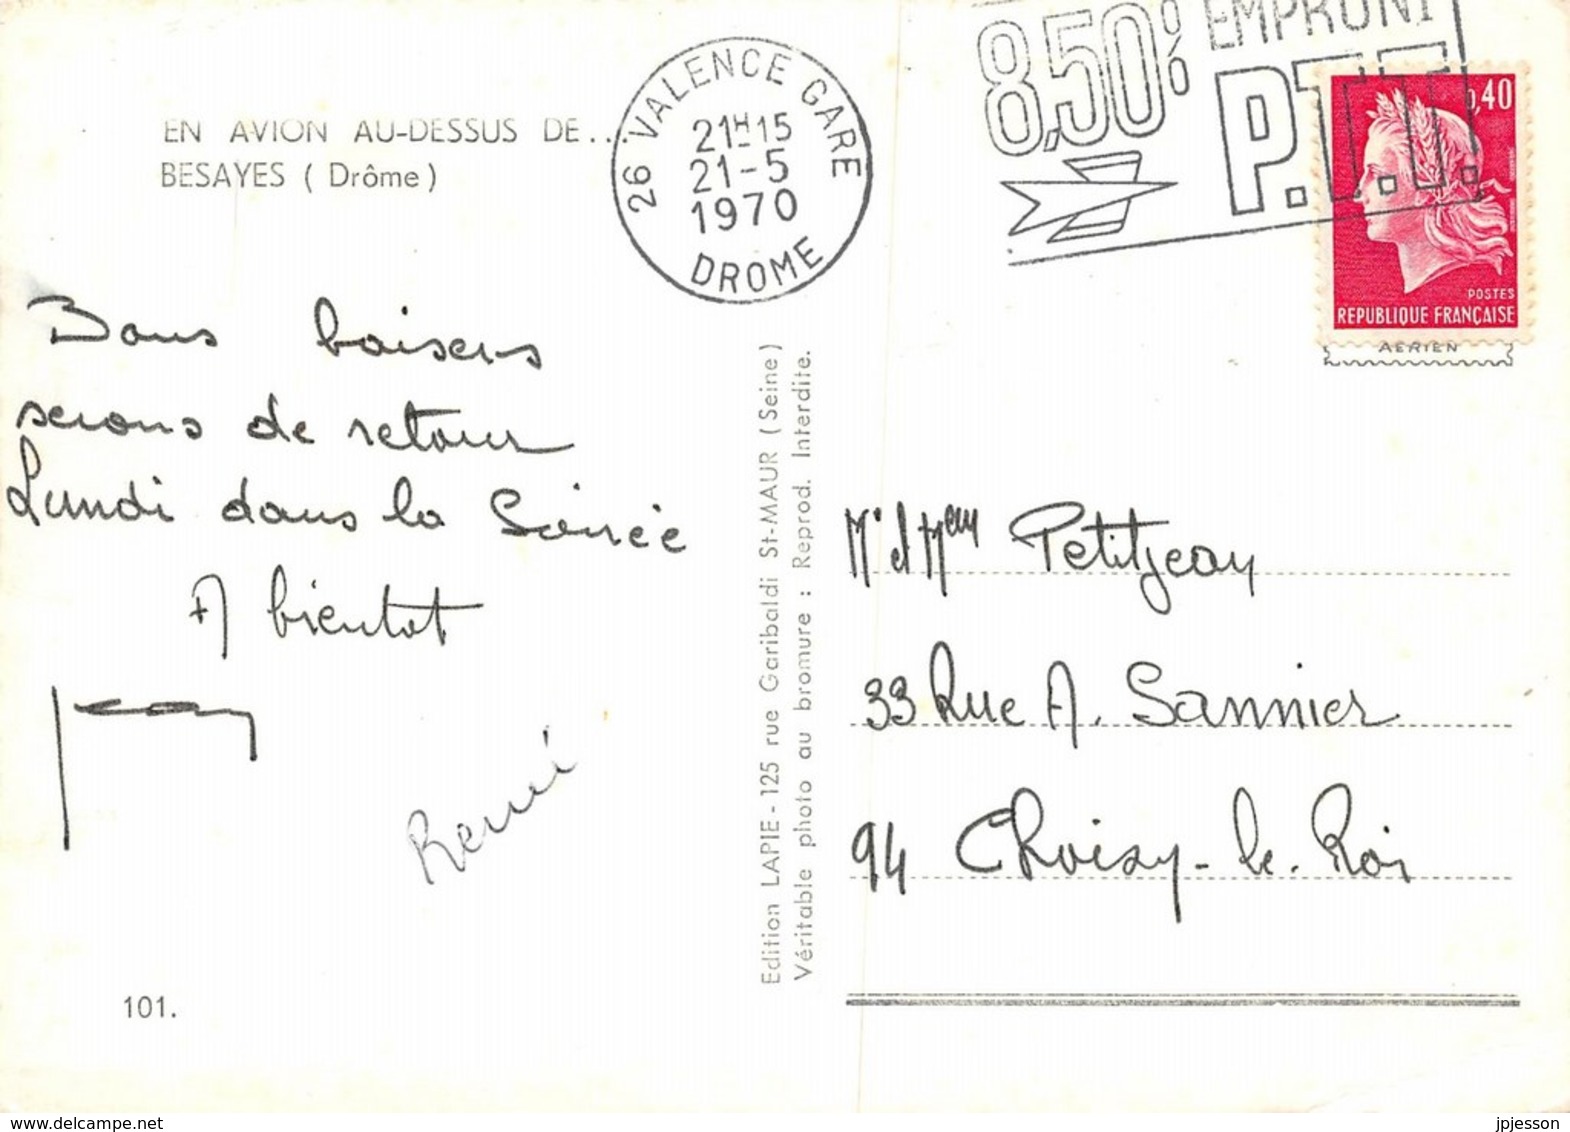 EN AVION AU-DESSUS DE...
BESAYES ( Drôme )
26 VALENCE GARE
21H15
21-5
1970
DROME
8,50%
EMPRUNT
P.T.T.
0,40
POSTES
REPUBLIQUE FRANÇAISE
AERIEN
Bons baisers
serons de retour
Lundi dans la Soirée
A bientot
Jean
René
101.
Edition LAPIE - 125 rue Garibaldi St-MAUR (Seine)
Véritable photo au bromure : Reprod. Interdite.
Mr et Mem Petitjean
33 Rue A. Sannier
94 Choisy-le-Roi
delcampe.net
jpjesson